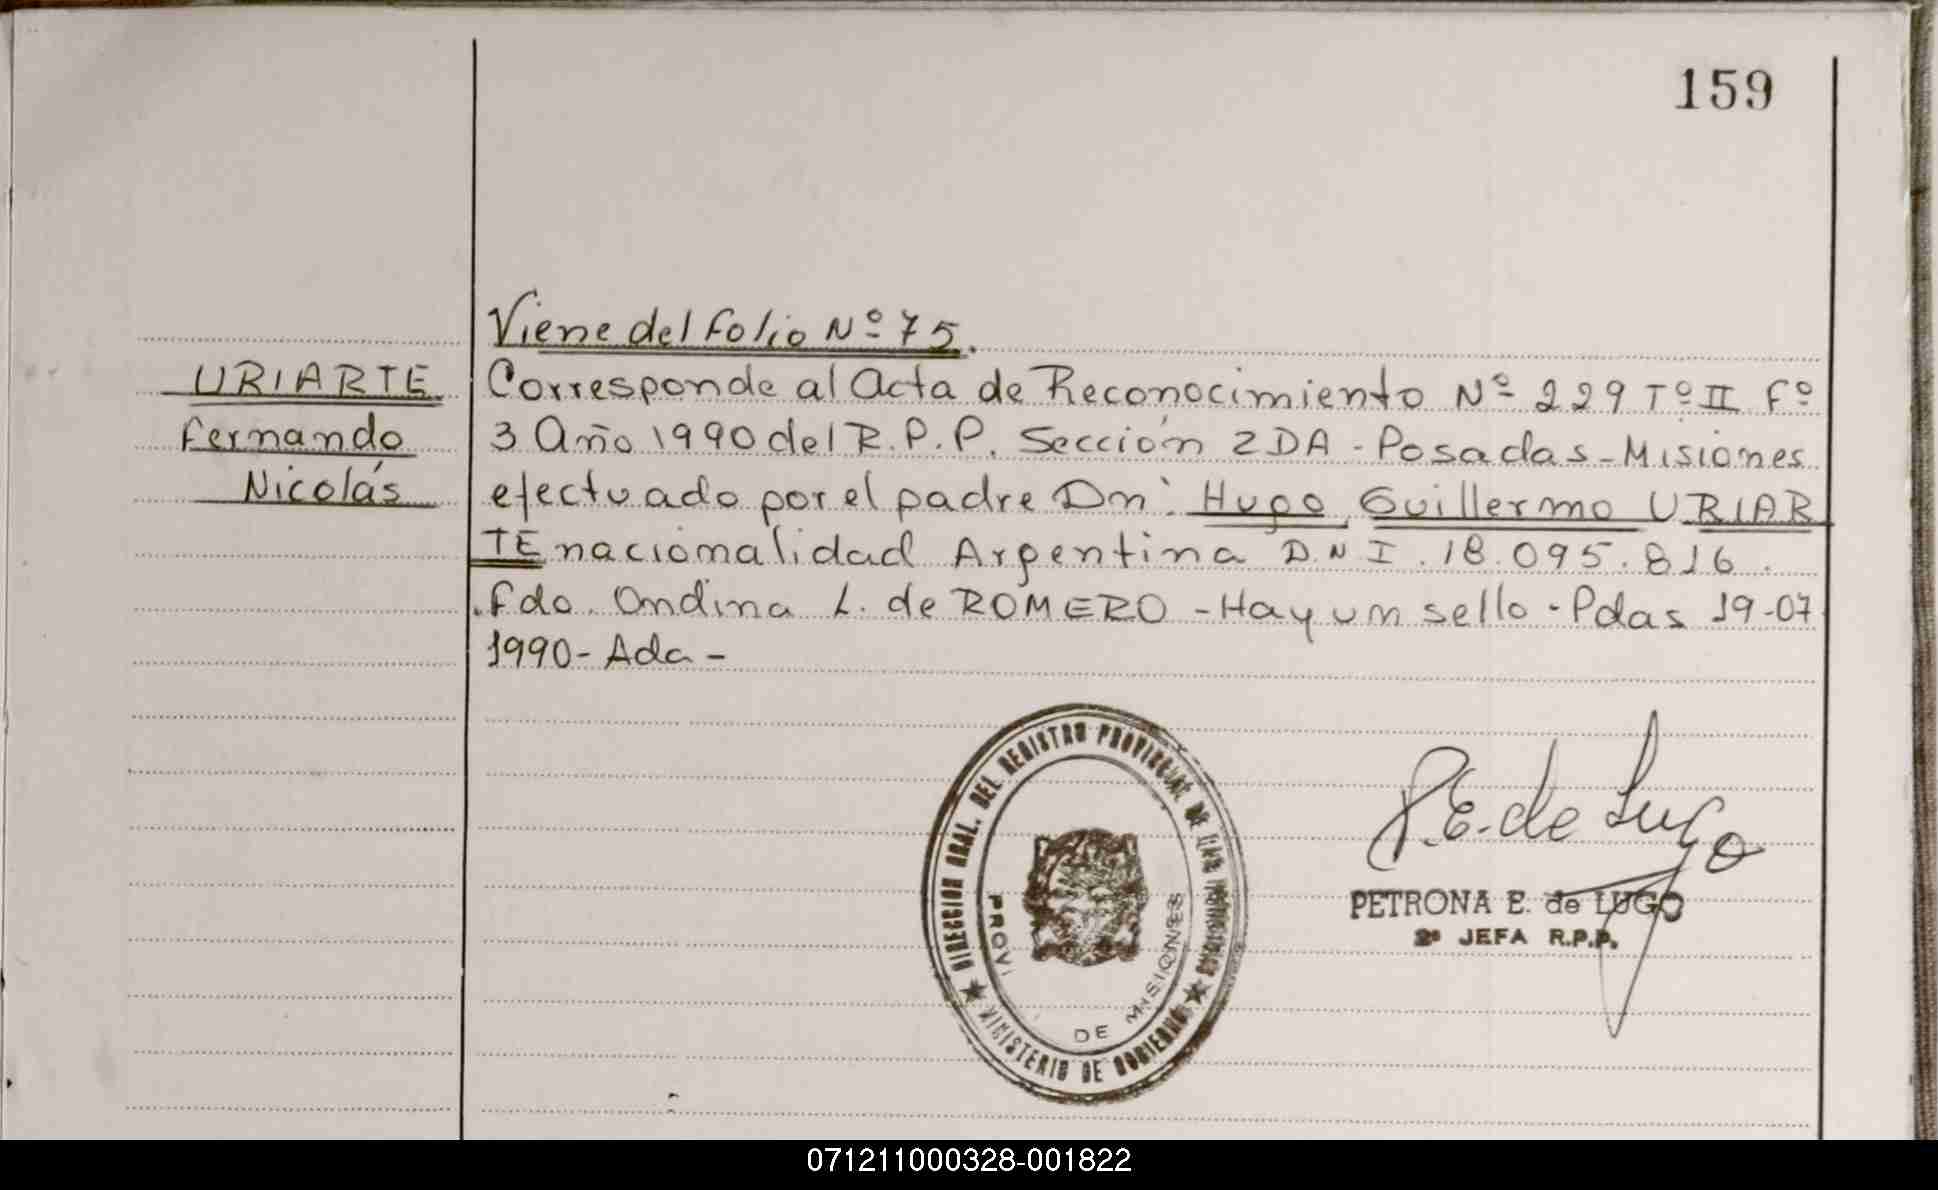 159
Viene del Folio Nº 75.
URIARTE
Fernando
Nicolás
Corresponde al Acta de Reconocimiento Nº 229 Tº II Fº
3 Año 1990 del R.P.P. Sección 2DA - Posadas - Misiones
efectuado por el padre Dn: Hugo Guillermo URIAR
TE nacionalidad Argentina D.N I. 18.095.816.
.Fdo. Ondina L. de ROMERO - Hay un sello - Pdas 19-07
1990 - Ada -
DIRECCION GRAL. DEL REGISTRO PROVINCIAL DE LAS PERSONAS
MINISTERIO DE GOBIERNO
DE MISIONES
P.E. de Lugo
PETRONA E. de LUGO
2ª JEFA R.P.P.
071211000328-001822